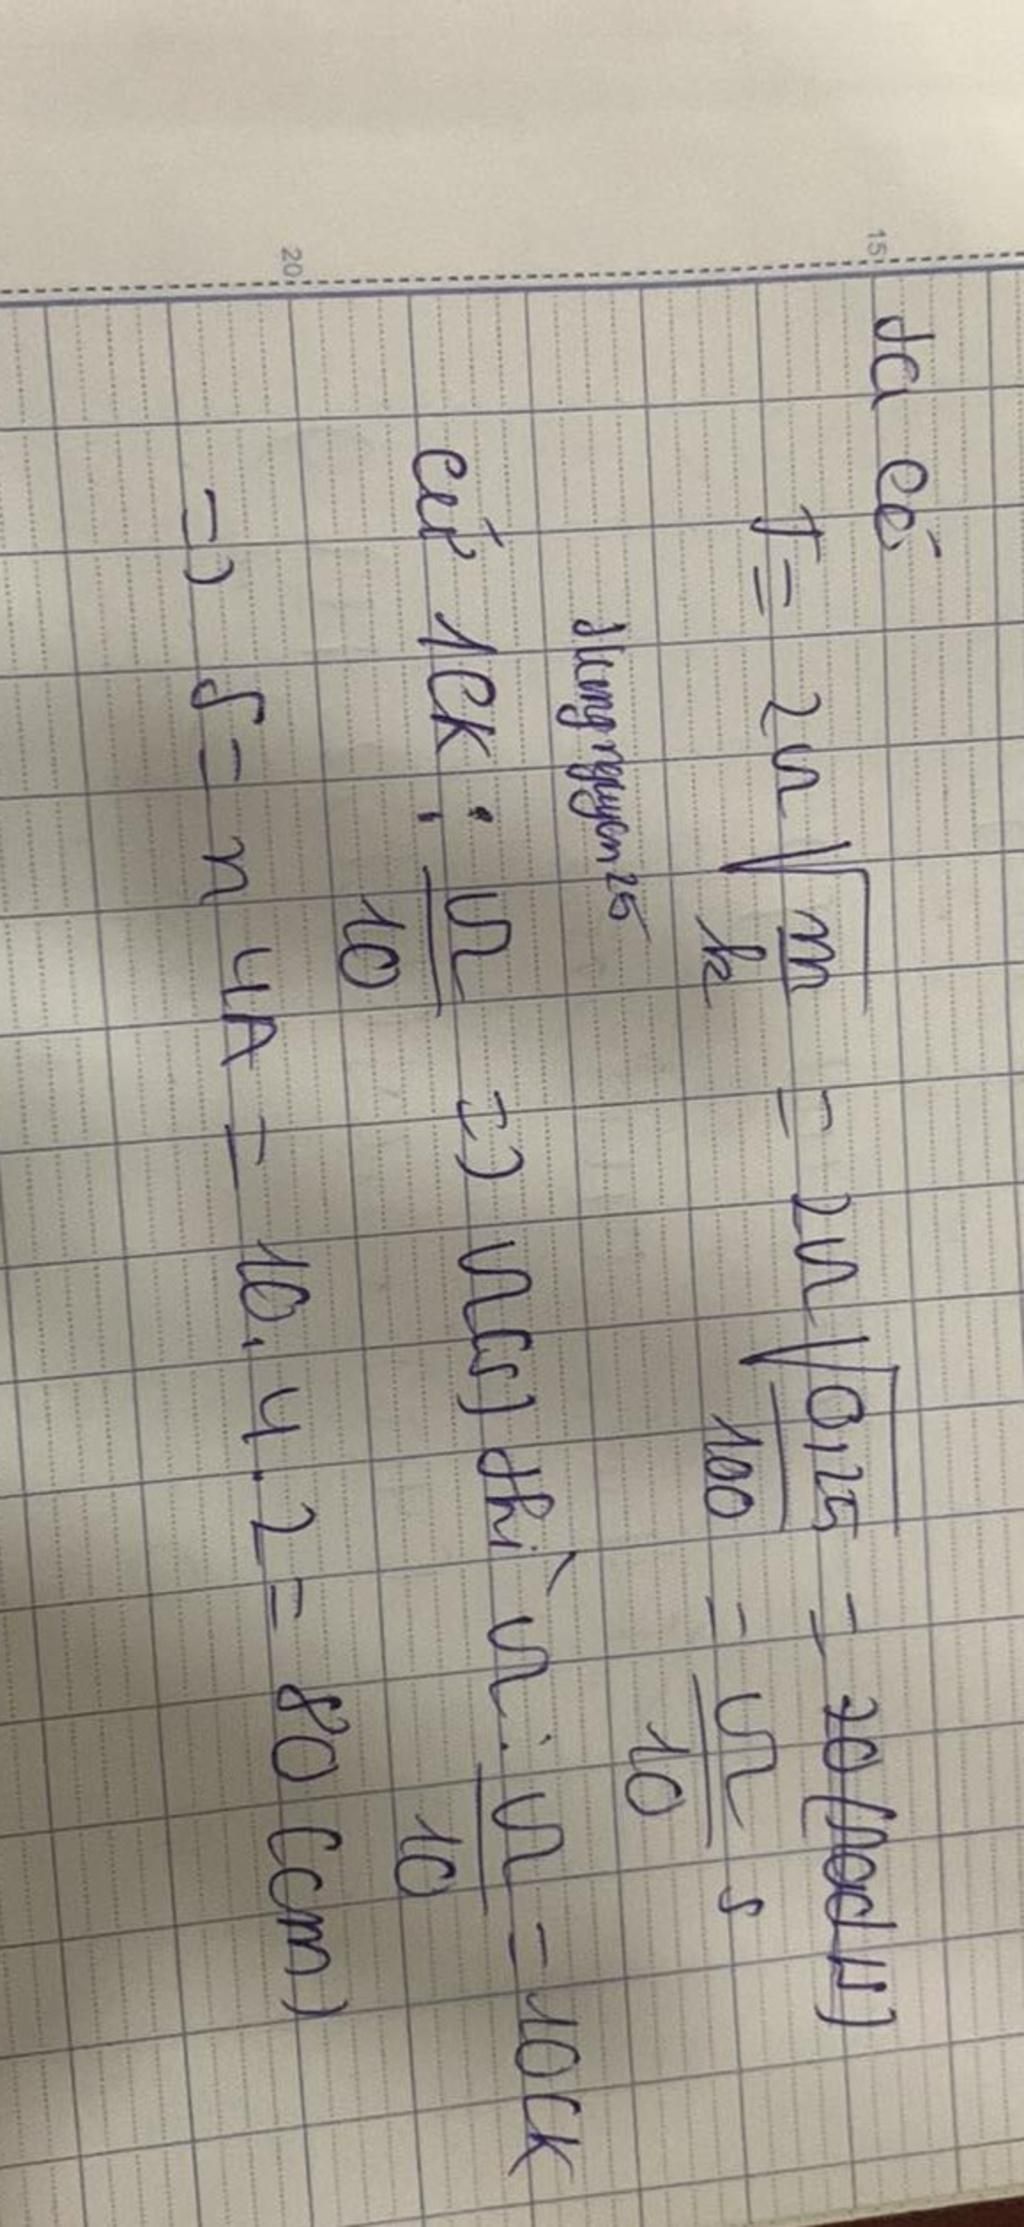 15
Ta có
T = 2π√(m/k) = 2π√(0,25/100) = 20 (rad/s)
= π/10 s
dungnguyen25
Cứ 1CK : π/10 => π(s) thì π : π/10 = 10CK
20
=> S = n 4A = 10.4.2 = 80 (cm)